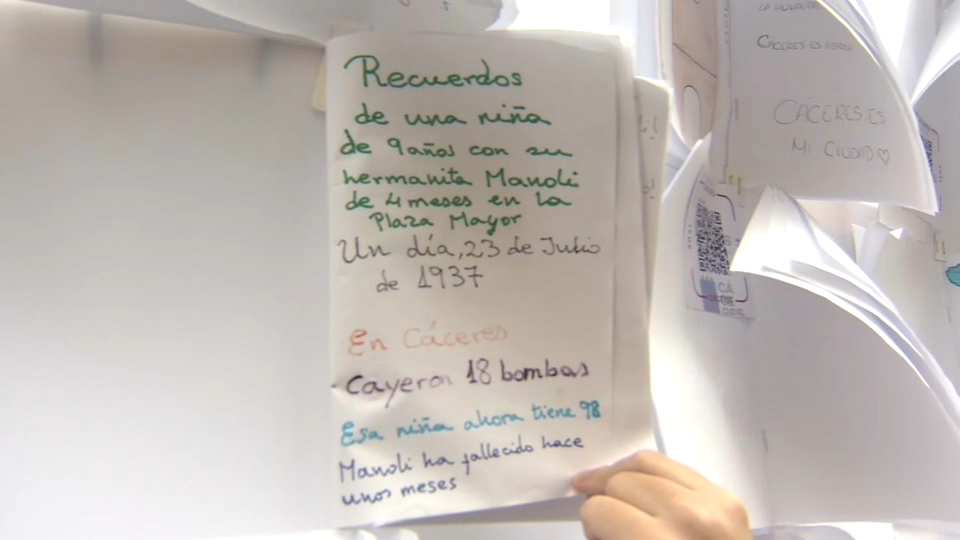 Recuerdos
de una niña
de 9 años con su
hermanita Manoli
de 4 meses en la
Plaza Mayor
Un día, 23 de Julio
de 1937
En Cáceres
Cayeron 18 bombas
Esa niña ahora tiene 98
Manoli ha fallecido hace
unos meses
CÁCERES ES
CÁCERES ES
MI CIUDAD♡
CÁ
CERES